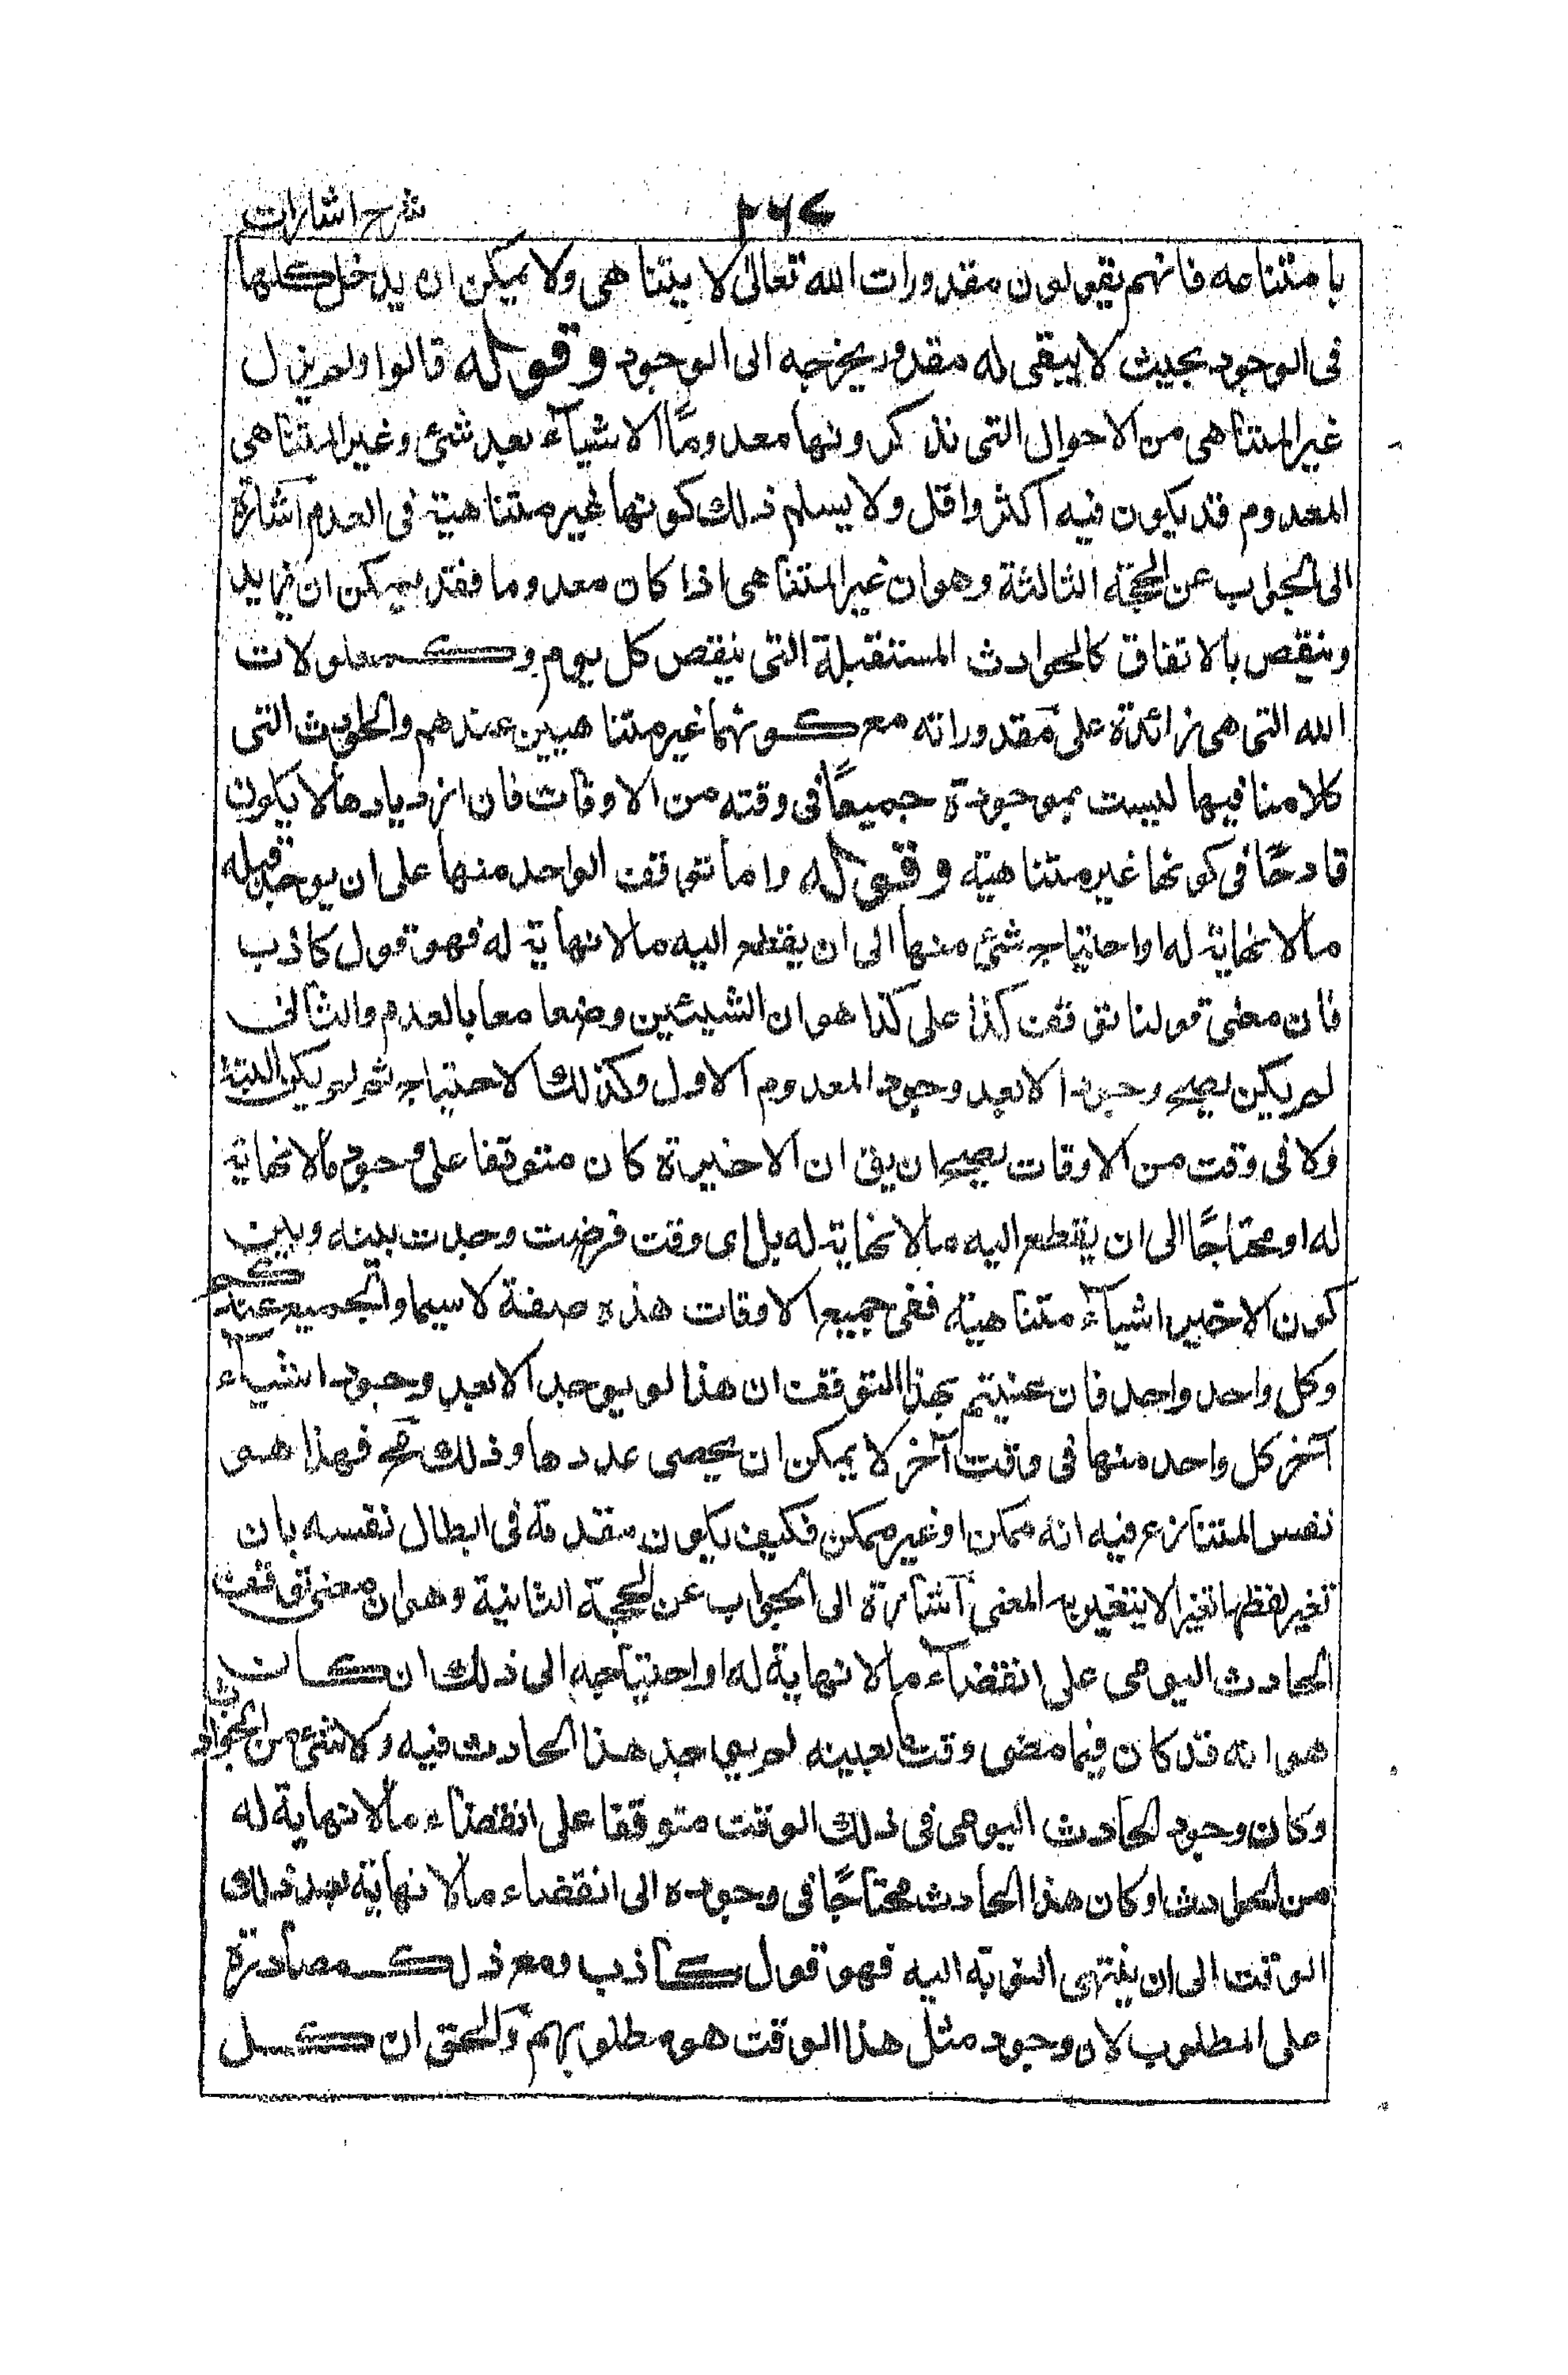 شرح اشارات
بامتناعه فانهم يقولون مقدورات الله تعالى لا يتناهى ولا يمكن ان يدخل كلها
فى الوجود بحيث لا يبقى له مقدور يخرجه الى الوجود وقوله قالوا ولم يزل
غير المتناهى من الاحوال التى نذكر ونها معدومًا الا شيآء بعد شئ وغير المتناهى
المعدوم قد يكون فيه اكثر واقل ولا يسلم ذلك كونها غير متناهية فى العدم آشارة
الى الجواب عن الحجة الثالثة وهو ان غير المتناهى اذا كان معدوما فقد يمكن ان يزيد
وينقص بالاتفاق كالحوادث المستقبلة التى ينقص كل يوم وكمعلولات
الله التى هى زائدة على مقدوراته مع كونهما غير متناهيين عندهم والحوادث التى
كلامنا فيها ليست بموجودة جميعًا فى وقته من الاوقات فان ازديادها لا يكون
قادحًا فى كونها غير متناهية وقوله واما توقف الواحد منها على ان يوجد قبله
ما لا نهاية له او احتياج شئ منها الى ان يقطع اليه ما لا نهاية له فهو قول كاذب
فان معنى قولنا توقف كذا على كذا هو ان الشيئين وضعا معا بالعدم والثانى
لم يكن يصح وجود الا بعد وجود المعدوم الاول وكذلك الاحتياج ثم لم يكن البتة
ولا فى وقت من الاوقات يصح ان يق ان الاخيرة كان متوقفا على وجود ما لا نهاية
له او محتاجًا الى ان يقطع اليه ما لا نهاية له بل اى وقت فرضت وجدت بينه وبين
كون الاخير اشيآء متناهية ففى جميع الاوقات هذه صفة لا سيما والجميع عندكم
وكل واحد واحد فان عنيتم بهذا التوقف ان هذا لو يوجد الا بعد وجود اشيآء
آخر كل واحد منها فى وقت آخر لا يمكن ان يحصى عددها وذلك مح فهذا هو
نفس المتنازع فيه انه ممكن او غير ممكن فكيف يكون مقدمة فى ابطال نفسه بان
تغير لفظها تغيرا لا يتغير به المعنى آشارة الى الجواب عن الحجة الثانية وهو ان معنى توقف
الحادث اليومى على انقضآء ما لا نهاية له او احتياجه الى ذلك ان كان
هو انه قد كان فيما مضى وقت بعينه لم يوجد هذا الحادث فيه ولا شئ من الحوادث
وكان وجود الحادث اليومى فى ذلك الوقت متوقفا على انقضاء ما لا نهاية له
من الحوادث او كان هذا الحادث محتاجًا فى وجوده الى انقضاء ما لا نهاية بعد ذلك
الوقت الى ان ينتهى النوبة اليه فهو قول كاذب ومع ذلك مصادرة
على المطلوب لان وجود مثل هذا الوقت هو مطلوبهم والحق ان كل